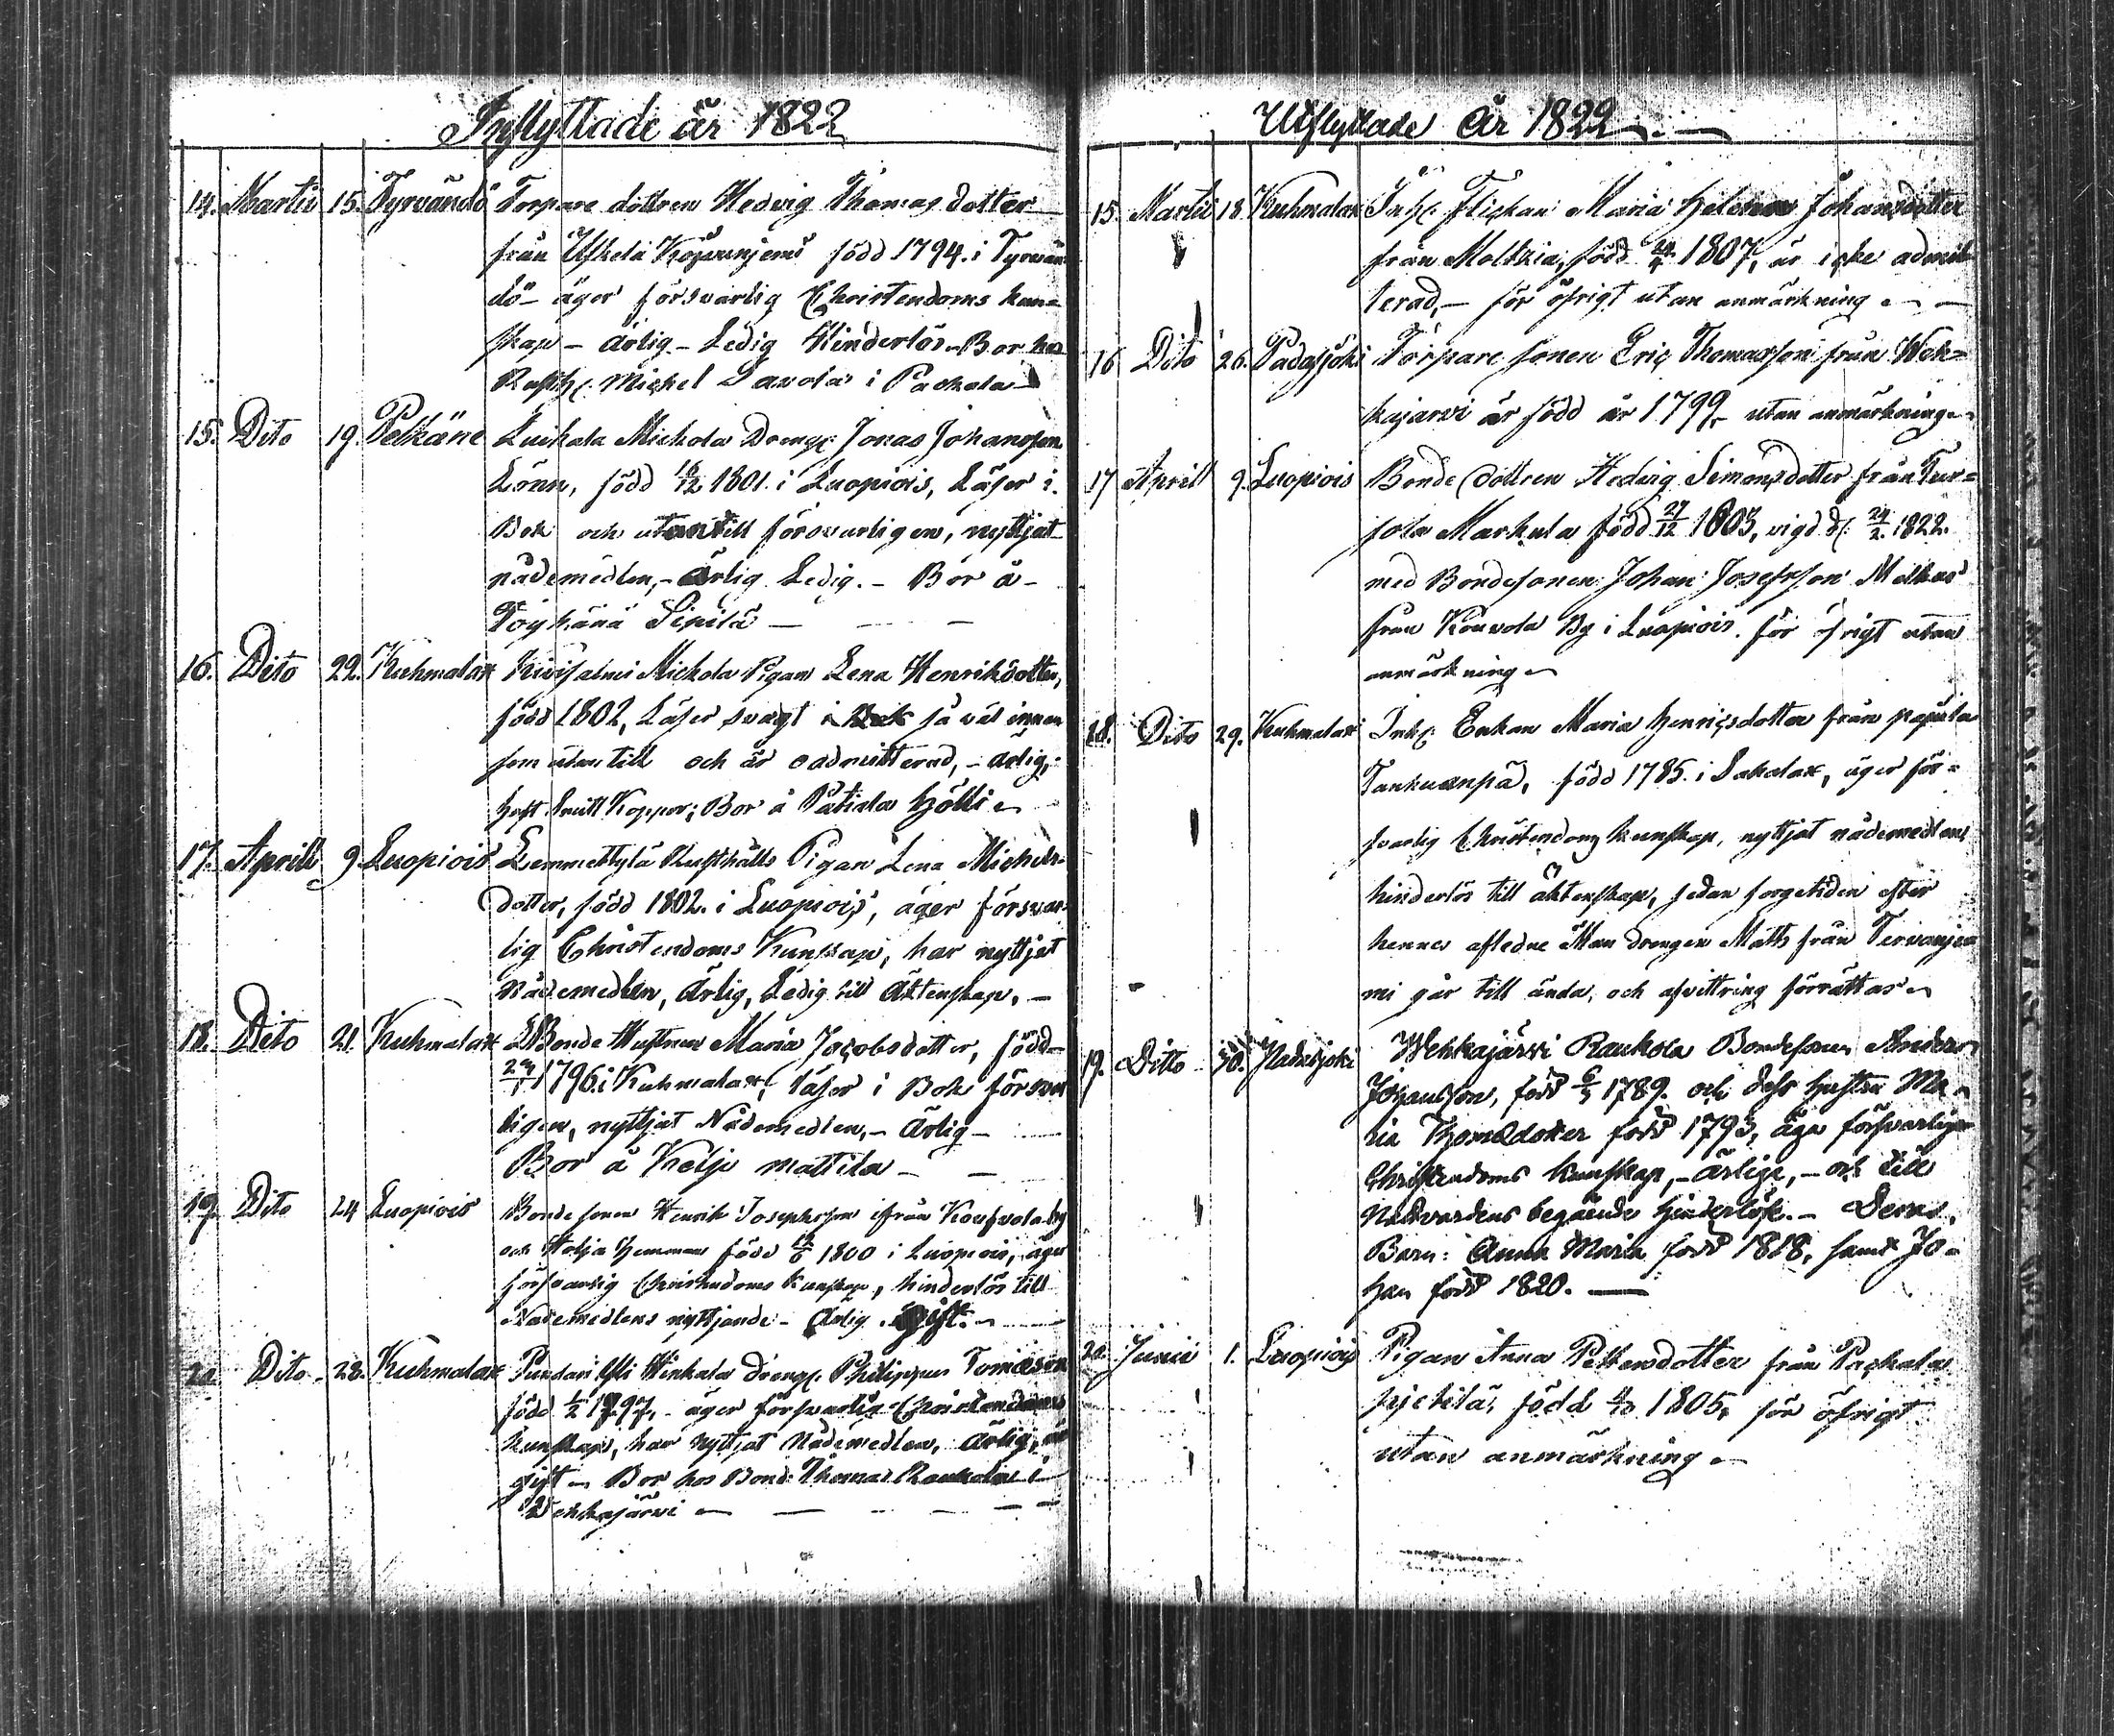 Inflyttade år 1822
14. Martii 15. Tyrvändö Torpare dottren Hedvig Thomas dotter
från Uskela född 1794. i Tyrvän
dö – äger försvarlig Christendoms kun-
skap – ärlig – Ledig Hinderlös – Bor hos
Rusth: Michel i Packala
15. Dito 19. Pelkäne Luikala Mickola Dreng: Jonas Johansson
Lönn, född 16/12 1801. i Luopiois, Läser i
Bok och utantill försvarligen, nyttjat
nådemedlen, – ärlig Ledig. – Bor å
Pöyhänä Sipilä –
16. Dito 22. Kuhmalax Mickola Pigan Lena Henriksdotter,
född 1802, Läser svagt i Bok så väl innan
som utan till och är oadmitterad, – ärlig,
haft Koppor; Bor å
17. Aprill 9. Luopiois Lemmettylä Rusthålls Pigan Lena Michels-
dotter, född 1802. i Luopiois, äger försvar-
lig Christendoms Kunskap, har nyttjat
Nådemedlen, Ärlig, Ledig till Äktenskap. –
18. Dito 21. Kuhmalax Bonde Hustrun Maria Jacobsdotter, född
1796. i Kuhmalax, läser i Bok försvar
ligen, nyttjat Nådemedlen, – Ärlig –
Bor å Keljo mattila –
19. Dito 24 Luopiois Bonde sonen Henrik Josephsson ifrån by
och född 1800 i Luopiois, äger
försvarlig Christendoms kunskap, hinderlös till
Nademedlens nyttjande – Ärlig. Gift. –
20 Dito 28. Kuhmalax Yli dreng: Philippus Tomasson
född 1/2 1797, – äger försvarlig Christendoms
kunskap, har nyttjat Nådemedlen, ärlig,
gift – Bor hos Bond: Thomas Raukola i
Wehkajärvi –
Utflyttade År 1822.
15. Martii 18. Kuhmalax Inh: Flickan Maria Helena Johansdotter
från född 1807, är icke admit-
terad, – för öfrigt utan anmärkning –
16 Dito 26. Padasjoki Torpare sonen Eric Thomasson från Weh-
kajarvi är född år 1799 – utan anmärkning –
17 Aprill 9. Luopiois Bonde dottren Hedvig Simonsdotter från
Markula född 27/12 1803, vigd d: 24/2 1822.
med Bondesonen Johan Josefsson
från By i Luopiois. för öfrigt utan
anmärkning –
18. Dito 29. Kuhmalax Inh: Enkan Maria Henricsdotter från
född 1785. i Sahalax, äger för-
svarlig Christendoms kunskap, nyttjat nådemedlen
hinderlös till äktenskap, sedan sorgetiden efter
hennes afledne Man drengen Matts från
mi går till ända, och afvittring förrättas –
19. Ditto 30. Padasjoki Wehkajärvi Raukola Bondesonen Anders
Johansson, född 1789. och dess hustru Ma-
ria Thomsdotter född 1793, äga försvarlig
Christendoms kunskap, – ärlige, – och till
Nattvardens begående hinderlöse. – Deras
Barn: Anna Maria född 1818, samt Jo-
han född 1820. –
20. Junii 1. Luopiois Pigan Anna Pettersdotter från Packala
född 1805, för öfrigt
utan anmärkning –